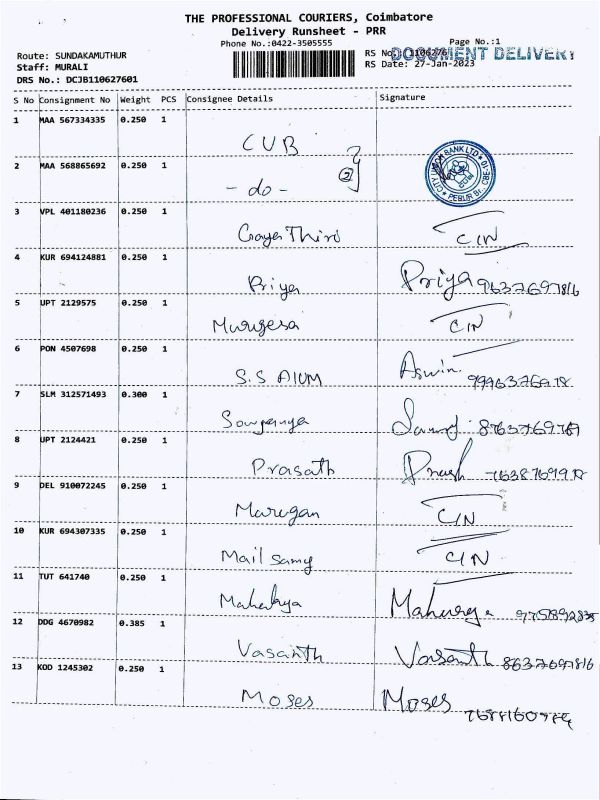 THE PROFESSIONAL COURIERS, Coimbatore
Delivery Runsheet - PRR
Phone No.:0422-3505555
Page No.:1
Route: SUNDAKAMUTHUR
RS No.: 1106276
DOCUMENT DELIVERY
Staff: MURALI
RS Date: 27-Jan-2023
DRS No.: DCJB110627601
S No Consignment No Weight PCS Consignee Details Signature
1 MAA 567334335 0.250 1
CUB
2 MAA 568865692 0.250 1
- do - 2
CITY UNION BANK LTD
PERUR Br. CBE-10
3 VPL 401180236 0.250 1
GayaThiri C/N
4 KUR 694124881 0.250 1
Priya Priya 9637697816
5 UPT 2129575 0.250 1
Murugesa C/N
6 PON 4507698 0.250 1
S.S AIUM Aswin
7 SLM 312571493 0.300 1
Sowparnya 8763769789
8 UPT 2124421 0.250 1
Prasath
9 DEL 910072245 0.250 1
Murugan C/N
10 KUR 694307335 0.250 1
Mail samy C/N
11 TUT 641740 0.250 1
12 DDG 4670982 0.385 1
Vasanth Vasanth 8637697816
13 KOD 1245302 0.250 1
Moses Moses